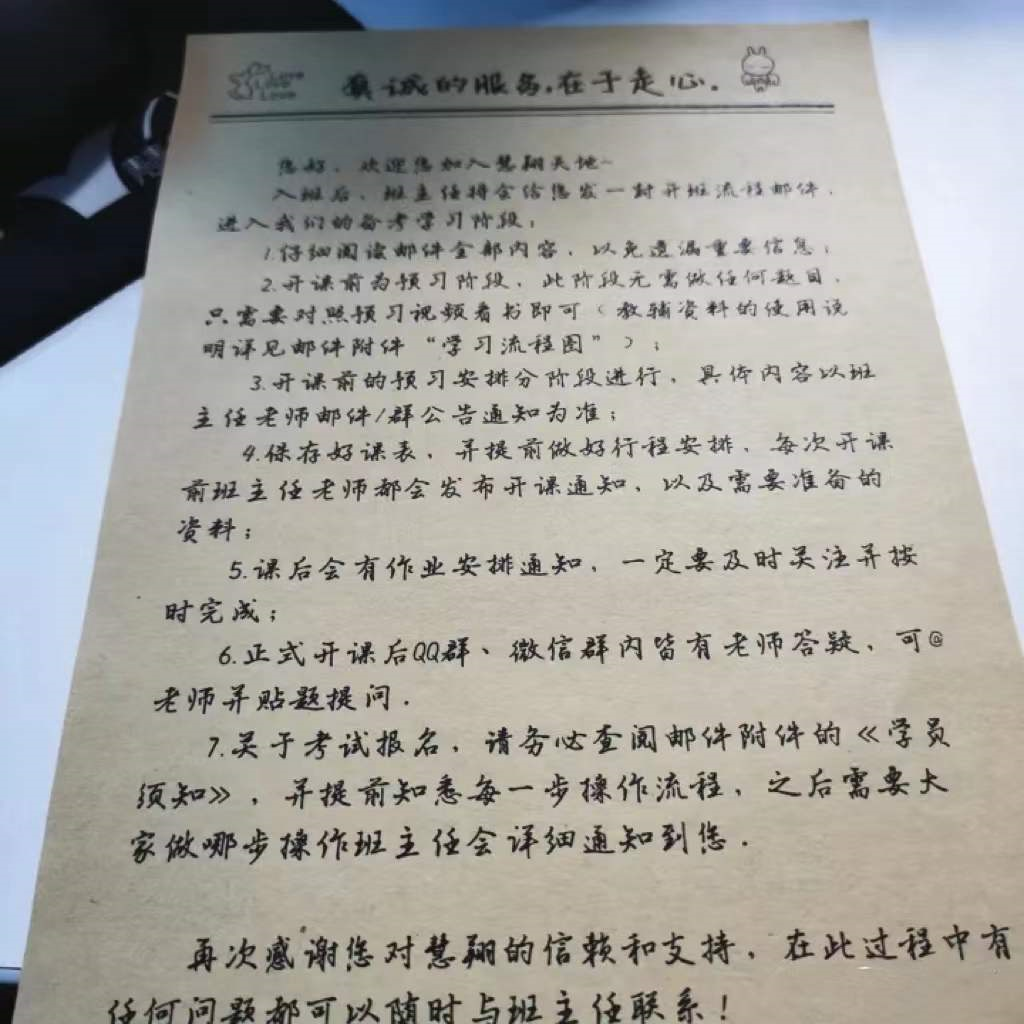 真诚的服务，在于走心。
您好，欢迎您加入慧翔天地~
入班后，班主任将会给您发一封开班流程邮件，
进入我们的备考学习阶段：
1.仔细阅读邮件全部内容，以免遗漏重要信息；
2.开课前为预习阶段，此阶段无需做任何题目，
只需要对照预习视频看书即可（教辅资料的使用说
明详见邮件附件“学习流程图”）；
3.开课前的预习安排分阶段进行，具体内容以班
主任老师邮件/群公告通知为准；
4.保存好课表，并提前做好行程安排，每次开课
前班主任老师都会发布开课通知，以及需要准备的
资料；
5.课后会有作业安排通知，一定要及时关注并按
时完成；
6.正式开课后QQ群、微信群内皆有老师答疑，可@
老师并贴题提问.
7.关于考试报名，请务必查阅邮件附件的《学员
须知》，并提前知悉每一步操作流程，之后需要大
家做哪步操作班主任会详细通知到您.
再次感谢您对慧翔的信赖和支持，在此过程中有
任何问题都可以随时与班主任联系！